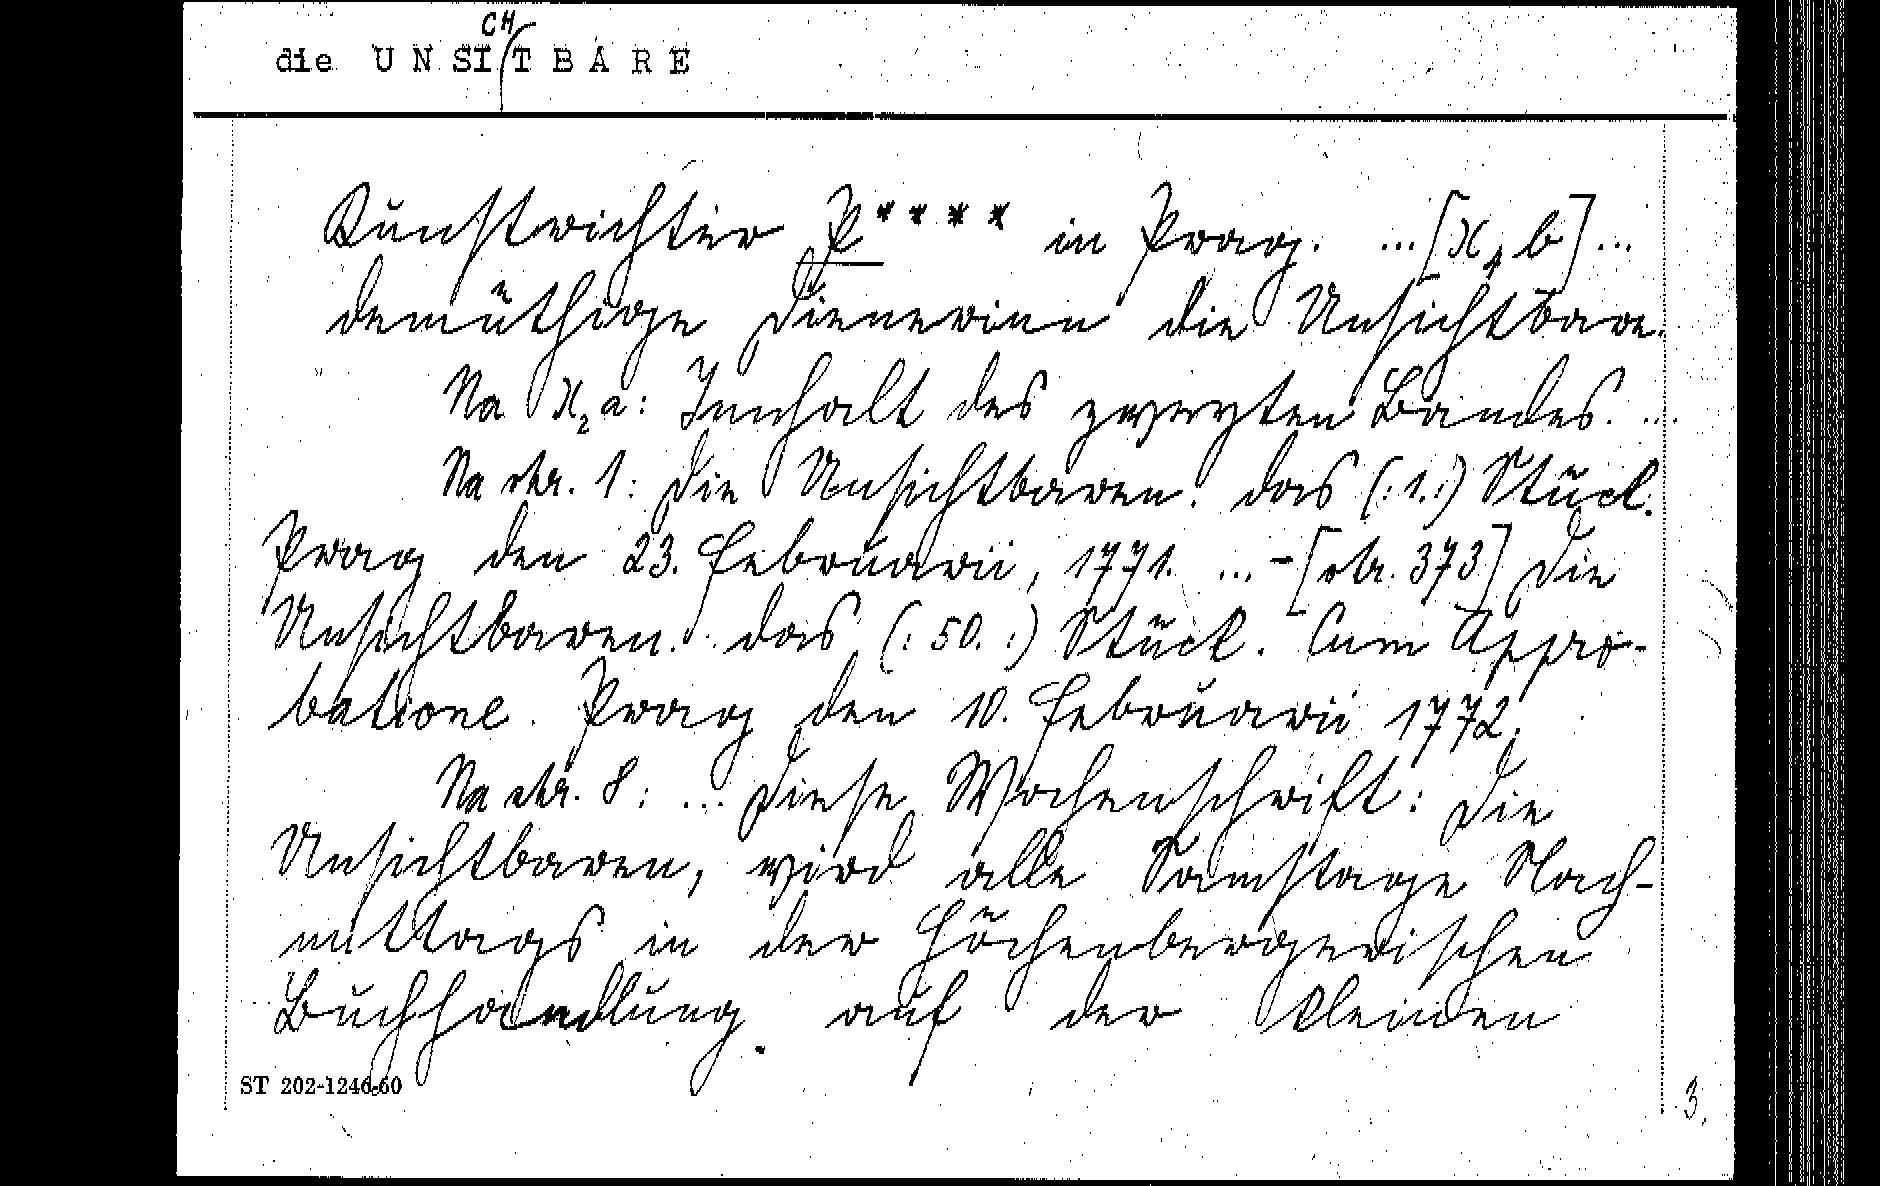 CH
die UNSITBARE
Kunstrichter P**** in Prag. ...[X4b]...
demüthige Dienerinn die Unsichtbare.
Na X2a: Innhalt des zweyten Bandes. ...
Na str. 1: Die Unsichtbaren. das (:1.:) Stück.
Prag den 23. Februarii, 1771. ... - [str. 373] Die
Unsichtbaren. das (: 50. :) Stück. Cum Appro-
batione. Prag den 10. Februarii 1772.
Na str. 8: ... Diese Wochenschrift: Die
Unsichtbaren, wird alle Samstage Nach-
mittags in der Höchenbergerischen
Buchhandlung auf der kleinen
ST 202-1246-60
3.